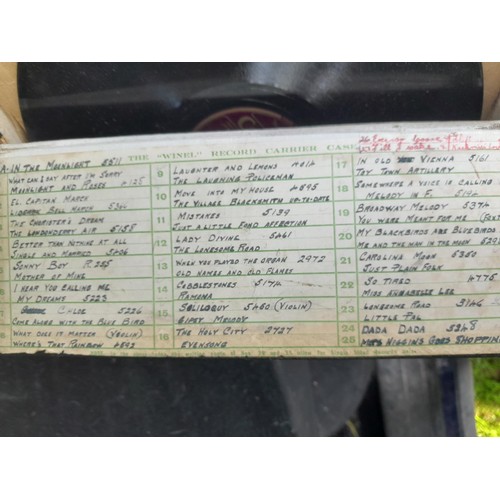 A-IN THE MOONLIGHT 5511
THE "WINEL" RECORD CARRIER CASE
WHAT CAN I SAY AFTER I'M SORRY
MOONLIGHT AND ROSES 4125
EL CAPITAN MARCH
LIBERTY BELL MARCH
THE CHORISTERS DREAM
THE LONDONDERRY AIR 5158
BETTER THAN NOTHING AT ALL
SINGLE AND MARRIED 5406
SONNY BOY R.258
MOTHER OF MINE
I HEAR YOU CALLING ME
MY DREAMS 5223
CHLOE 5226
COME ALONG WITH THE BLUE BIRD
WHAT DOES IT MATTER (VIOLIN)
WHERE'S THAT RAINBOW 4892
9 LAUGHTER AND LEMONS
THE LAUGHING POLICEMAN
10 MOVE INTO MY HOUSE 4895
THE VILLAGE BLACKSMITH UP-TO-DATE
11 MISTAKES 5139
JUST A LITTLE FOND AFFECTION
12 LADY DIVINE 5461
THE LONESOME ROAD
13 WHEN YOU PLAYED THE ORGAN 2972
OLD NAMES AND OLD FLAMES
14 COBBLESTONES 5174
RAMONA
15 SOLILOQUY 5450 (VIOLIN)
GIPSY MELODY
16 THE HOLY CITY 2727
EVENSONG
17 IN OLD VIENNA 5161
TOY TOWN ARTILLERY
18 SOMEWHERE A VOICE IS CALLING
MELODY IN F.
19 BROADWAY MELODY 5374
YOU WERE MEANT FOR ME
20 MY BLACKBIRDS ARE BLUEBIRDS
ME AND THE MAN IN THE MOON
21 CAROLINA MOON 5350
JUST PLAIN FOLK
22 SO TIRED 4775
MISS ANNABELLE LEE
23 LONESOME ROAD 3146
LITTLE PAL
24 DADA DADA 5348
25 MRS HIGGINS GOES SHOPPIN